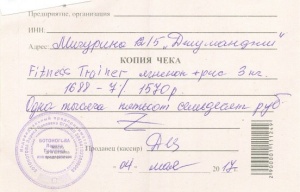 Предприятие, организация
ИНН
Адрес: Мичурина 215 „Джуманджи"
КОПИЯ ЧЕКА
Fitness Trainer ягненок + рис 3 кг.
1688-7/ 1570р
Одна тысяча пятьсот семьдесят руб
Продавец (кассир)
«04» мая 2017г.